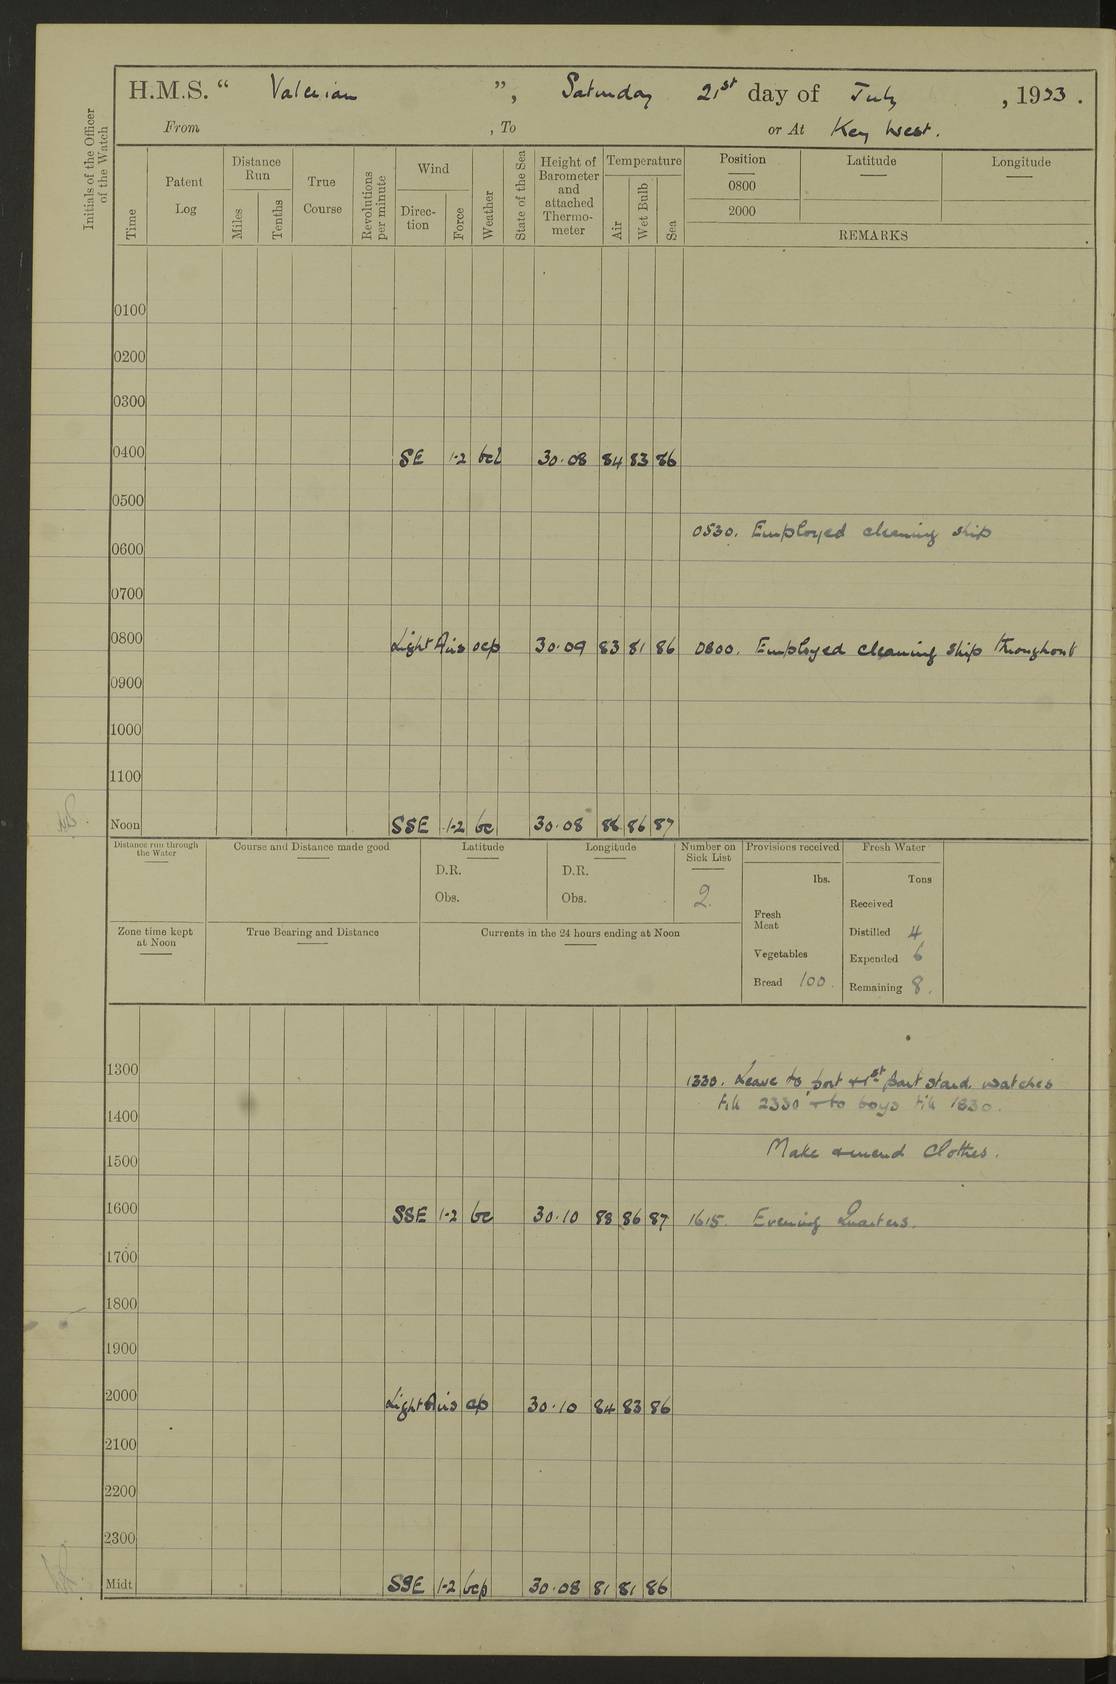 H.M.S. “ Valerian ”, Saturday 21st day of July , 1923 .
From , To or At Key West.
Initials of the Officer of the Watch
Time
Patent Log
Distance Run
Miles
Tenths
True Course
Revolutions per minute
Wind
Direc-tion
Force
Weather
State of the Sea
Height of Barometer and attached Thermo-meter
Temperature
Air
Wet Bulb
Sea
Position Latitude Longitude
0800
2000
REMARKS
0100
0200
0300
0400 SE 1-2 bcl 30.08 84 83 86
0500
0530. Employed cleaning ship
0600
0700
0800 Light Airs ocp 30.09 83 81 86 0800. Employed cleaning ship throughout
0900
1000
1100
Noon SSE 1-2 bc 30.08 88 86 87
Distance run through the Water
Course and Distance made good
Latitude
D.R.
Obs.
Longitude
D.R.
Obs.
Number on Sick List
2.
Provisions received
lbs.
Fresh Meat
Vegetables
Bread 100.
Fresh Water
Tons
Received
Distilled 4
Expended 6
Remaining 8.
Zone time kept at Noon
True Bearing and Distance
Currents in the 24 hours ending at Noon
1300
1330. Leave to port & 1st part stard. watches
till 2330 & to boys till 1830.
1400
Make & mend Clothes.
1500
1600 SSE 1-2 bc 30.10 88 86 87 1615. Evening Quarters.
1700
1800
1900
2000 Light Airs cp 30.10 84 83 86
2100
2200
2300
Midt. SSE 1-2 bcp 30.08 81 81 86